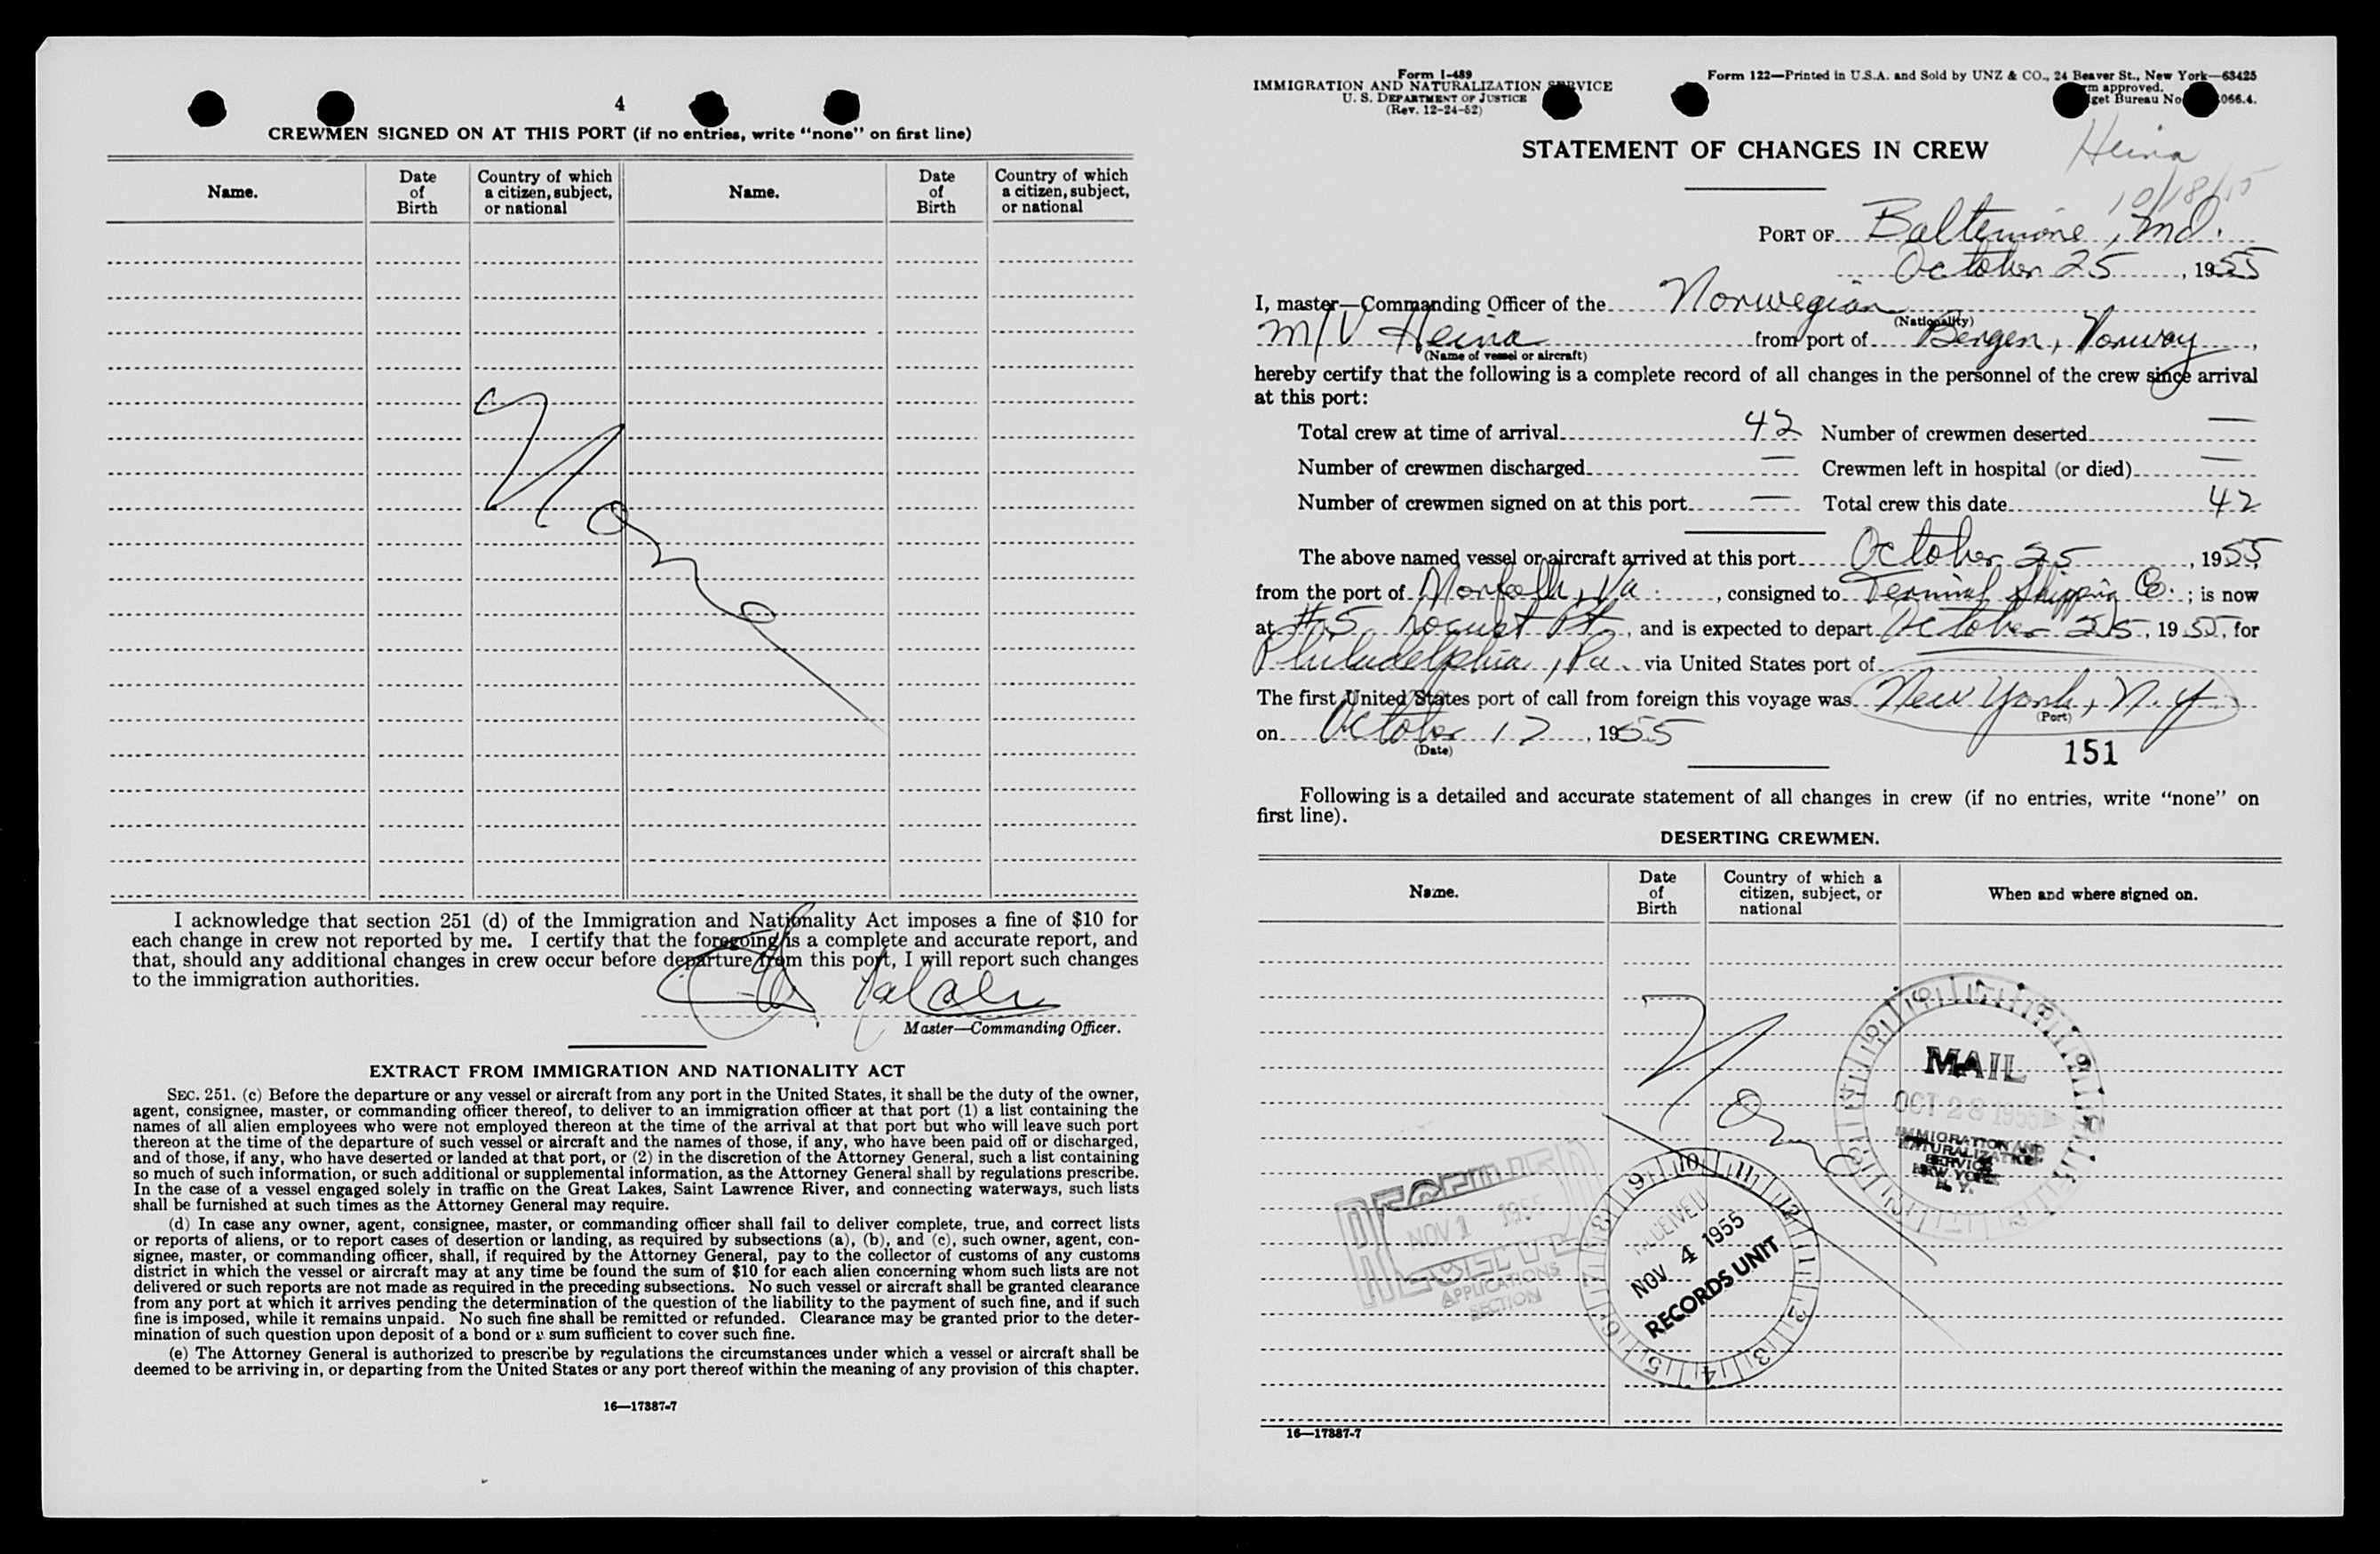 4
CREWMEN SIGNED ON AT THIS PORT (if no entries, write "none" on first line)
Name.
Date of Birth
Country of which a citizen, subject, or national
Name.
Date of Birth
Country of which a citizen, subject, or national
None
I acknowledge that section 251 (d) of the Immigration and Nationality Act imposes a fine of $10 for
each change in crew not reported by me. I certify that the foregoing is a complete and accurate report, and
that, should any additional changes in crew occur before departure from this port, I will report such changes
to the immigration authorities.
Master—Commanding Officer.
EXTRACT FROM IMMIGRATION AND NATIONALITY ACT
SEC. 251. (c) Before the departure or any vessel or aircraft from any port in the United States, it shall be the duty of the owner,
agent, consignee, master, or commanding officer thereof, to deliver to an immigration officer at that port (1) a list containing the
names of all alien employees who were not employed thereon at the time of the arrival at that port but who will leave such port
thereon at the time of the departure of such vessel or aircraft and the names of those, if any, who have been paid off or discharged,
and of those, if any, who have deserted or landed at that port, or (2) in the discretion of the Attorney General, such a list containing
so much of such information, or such additional or supplemental information, as the Attorney General shall by regulations prescribe.
In the case of a vessel engaged solely in traffic on the Great Lakes, Saint Lawrence River, and connecting waterways, such lists
shall be furnished at such times as the Attorney General may require.
(d) In case any owner, agent, consignee, master, or commanding officer shall fail to deliver complete, true, and correct lists
or reports of aliens, or to report cases of desertion or landing, as required by subsections (a), (b), and (c), such owner, agent, con-
signee, master, or commanding officer, shall, if required by the Attorney General, pay to the collector of customs of any customs
district in which the vessel or aircraft may at any time be found the sum of $10 for each alien concerning whom such lists are not
delivered or such reports are not made as required in the preceding subsections. No such vessel or aircraft shall be granted clearance
from any port at which it arrives pending the determination of the question of the liability to the payment of such fine, and if such
fine is imposed, while it remains unpaid. No such fine shall be remitted or refunded. Clearance may be granted prior to the deter-
mination of such question upon deposit of a bond or a sum sufficient to cover such fine.
(e) The Attorney General is authorized to prescribe by regulations the circumstances under which a vessel or aircraft shall be
deemed to be arriving in, or departing from the United States or any port thereof within the meaning of any provision of this chapter.
16—17387-7
Form I-489
IMMIGRATION AND NATURALIZATION SERVICE
U. S. DEPARTMENT OF JUSTICE
(Rev. 12-24-52)
Form 122—Printed in U.S.A. and Sold by UNZ & CO., 24 Beaver St., New York—63425
approved.
get Bureau No 066.4.
STATEMENT OF CHANGES IN CREW
Heina
10/18/55
PORT OF Baltimore, Md.
October 25, 1955
I, master—Commanding Officer of the Norwegian
(Nationality)
M/V Heina from port of Bergen, Norway,
(Name of vessel or aircraft)
hereby certify that the following is a complete record of all changes in the personnel of the crew since arrival
at this port:
Total crew at time of arrival 42 Number of crewmen deserted —
Number of crewmen discharged — Crewmen left in hospital (or died) —
Number of crewmen signed on at this port — Total crew this date 42
The above named vessel or aircraft arrived at this port October 25, 1955,
from the port of Norfolk, Va., consigned to Terminal Shipping Co.; is now
at #5 Locust Pt, and is expected to depart October 25, 1955, for
Philadelphia, Pa. via United States port of
The first United States port of call from foreign this voyage was New York, N.Y.
(Port)
on October 17, 1955
(Date)
151
Following is a detailed and accurate statement of all changes in crew (if no entries, write "none" on
first line).
DESERTING CREWMEN.
Name.
Date of Birth
Country of which a citizen, subject, or national
When and where signed on.
None
MAIL
OCT 28 1955
IMMIGRATION AND
NATURALIZATION
SERVICE
NEW YORK
N. Y.
RECEIVED
NOV 1 1955
APPLICATIONS
SECTION
9 10 11 12 1 2 3 4 5 6 7 8
RECEIVED
NOV 4 1955
RECORDS UNIT
16—17387-7